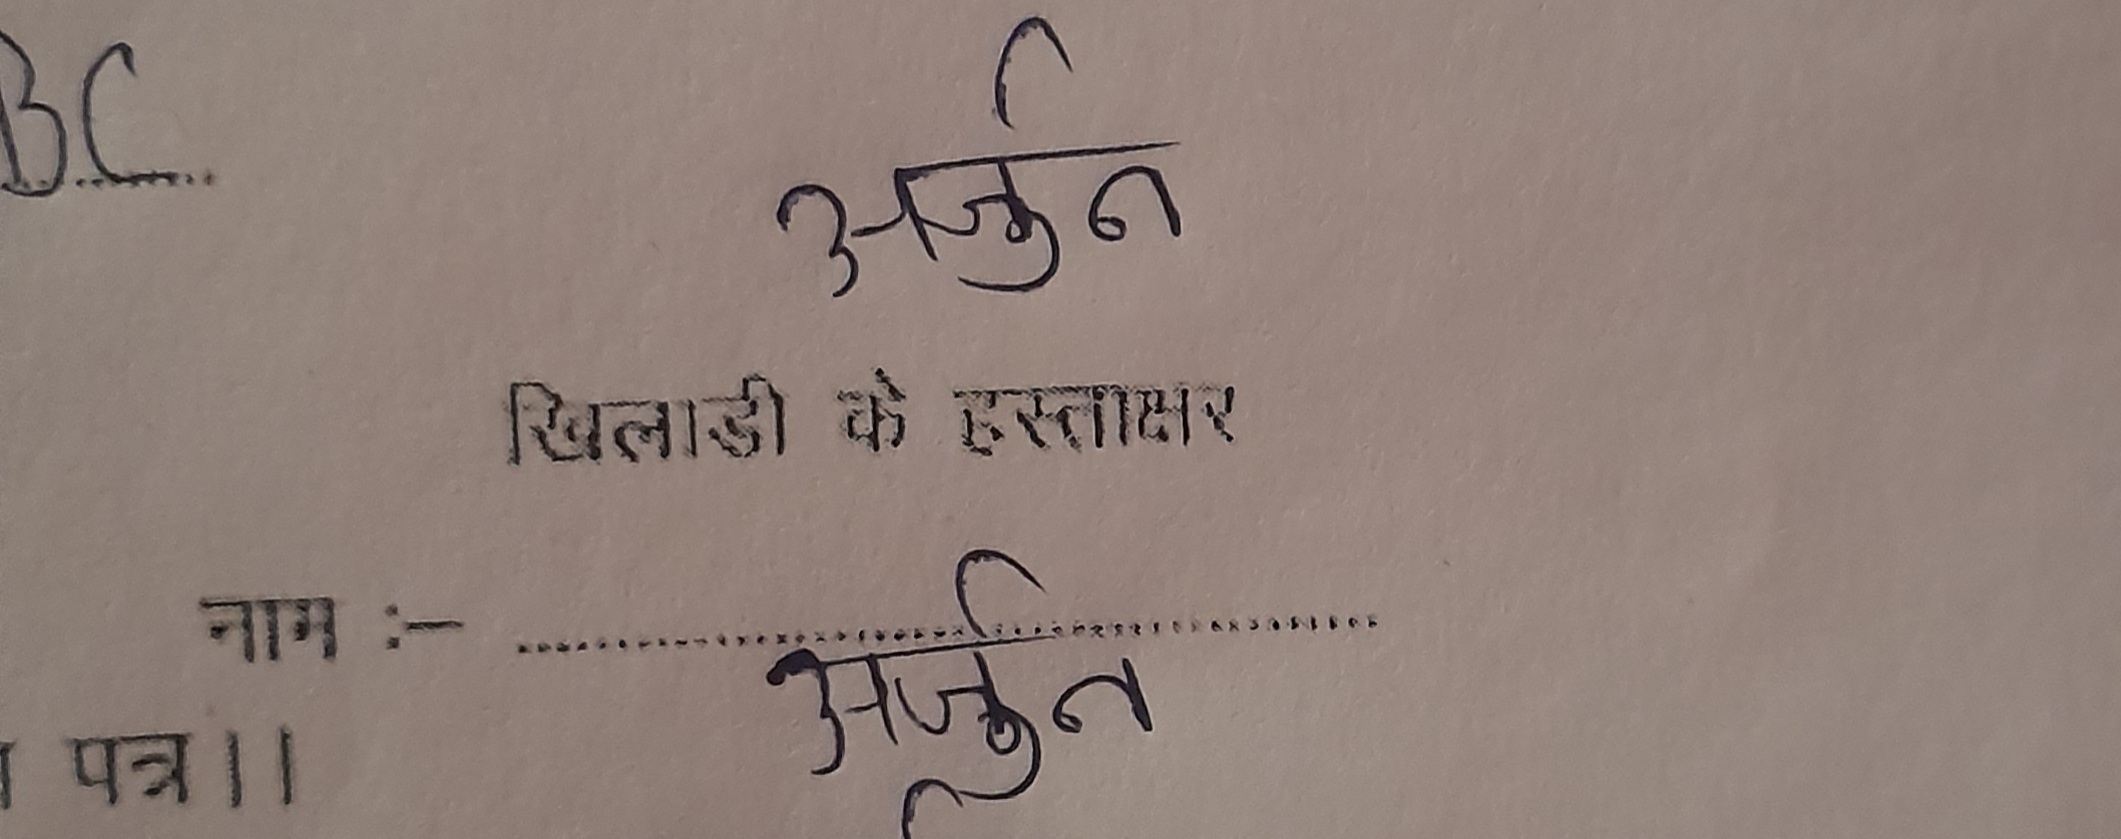 BC
अर्जुन
खिलाडी के हस्ताक्षर
नाम :- ..............................
अर्जुन
पत्र ।।